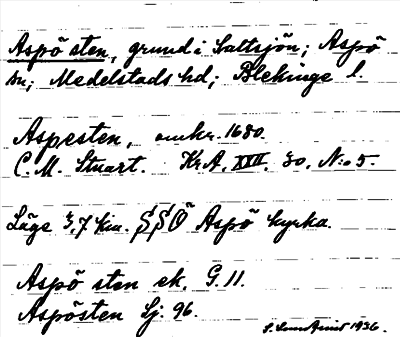 Aspö sten, grund i Saltsjön; Aspö
sn; Medelstads hd; Blekinge l.
Aspesten, omkr. 1680.
C. M. Stuart. KrA. XVII. 30. N:o 5.
Läge 3,7 km. SSÖ Aspö kyrka.
Aspö sten ek. G. 11.
Aspösten Sj. 96.
1936.